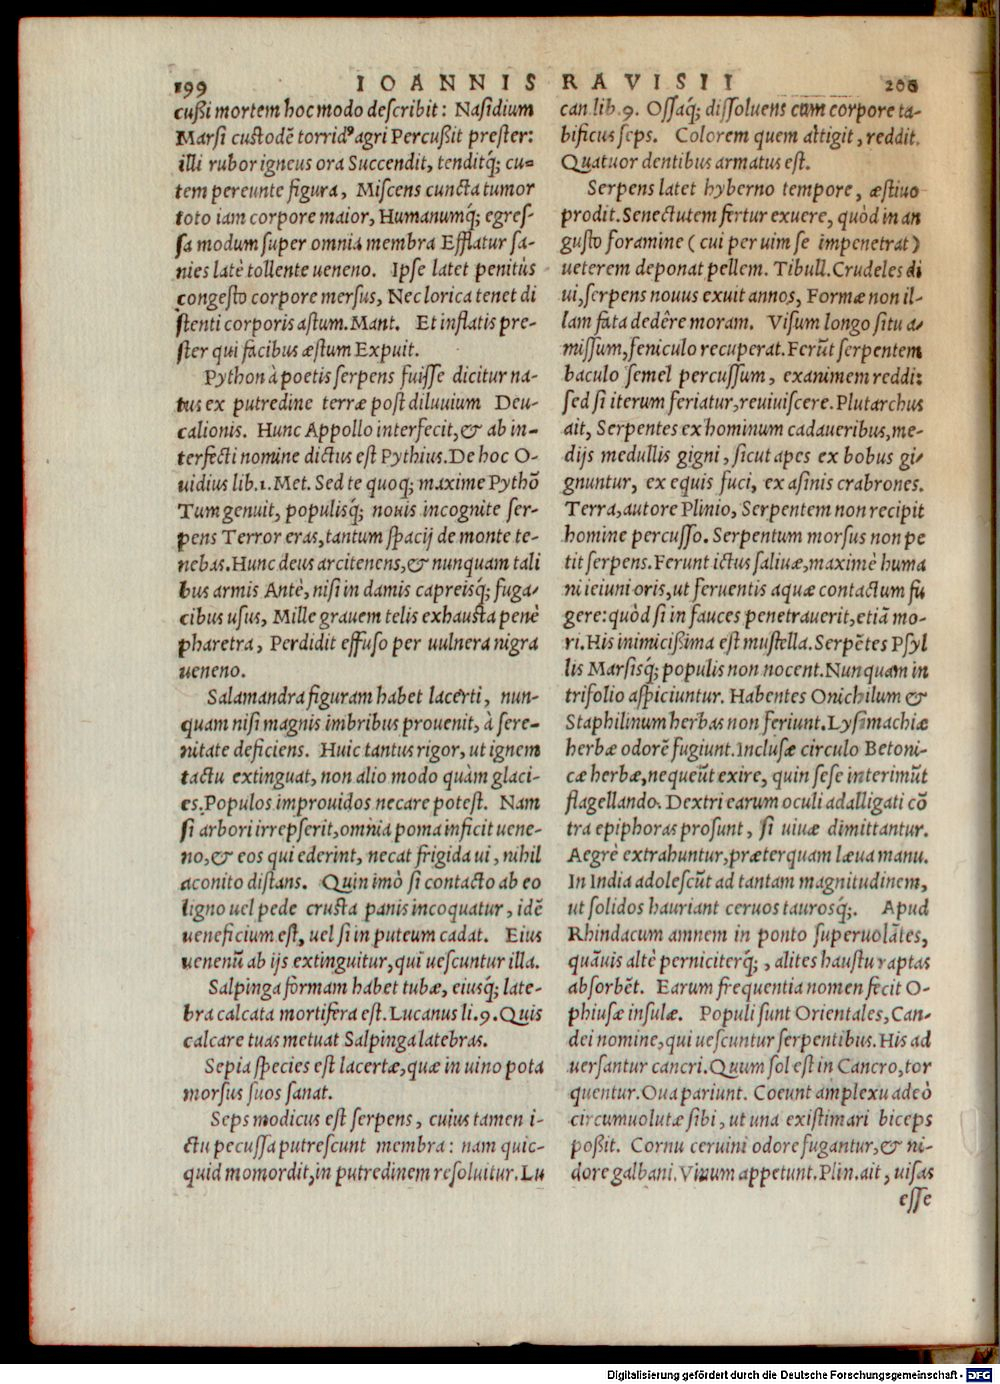 199 IOANNIS RAVISII 200
cußi mortem hoc modo describit: Nasidium
Marsi custodē torridꝰ agri Percußit prester:
illi rubor igneus ora Succendit, tenditq́; cu=
tem pereunte figura, Miscens cuncta tumor
toto iam corpore maior, Humanumq́; egres-
sa modum super omnia membra Efflatur sa-
nies latè tollente ueneno. Ipse latet penitùs
congesto corpore mersus, Nec lorica tenet di
stenti corporis astum. Mant. Et inflatis pre-
ster qui facibus æstum Expuit.
Python à poetis serpens fuisse dicitur na-
tus ex putredine terræ post diluuium Deu-
calionis. Hunc Appollo interfecit, & ab in-
terfecti nomine dictus est Pythius. De hoc O-
uidius lib. 1. Met. Sed te quoq; maxime Pythō
Tum genuit, populisq́; nouis incognite ser-
pens Terror eras, tantum spacij de monte te-
nebas. Hunc deus arcitenens, & nunquam tali
bus armis Antè, nisi in damis capreisq́; fuga-
cibus usus, Mille grauem telis exhausta penè
pharetra, Perdidit effuso per uulnera nigra
ueneno.
Salamandra figuram habet lacerti, nun-
quam nisi magnis imbribus prouenit, à sere-
nitate deficiens. Huic tantus rigor, ut ignem
tactu extinguat, non alio modo quàm glaci-
es. Populos improuidos necare potest. Nam
si arbori irrepserit, omnia poma inficit uene-
no, & eos qui ederint, necat frigida ui, nihil
aconito distans. Quin imò si contacto ab eo
ligno uel pede crusta panis incoquatur, idē
ueneficium est, uel si in puteum cadat. Eius
uenenū ab ijs extinguitur, qui uescuntur illa.
Salpinga formam habet tubæ, eiusq́; late-
bra calcata mortifera est. Lucanus li. 9. Quis
calcare tuas metuat Salpinga latebras.
Sepia species est lacertæ, quæ in uino pota
morsus suos sanat.
Seps modicus est serpens, cuius tamen i-
ctu pecussa putrescunt membra: nam quic-
quid momordit, in putredinem resoluitur. Lu
can. lib. 9. Ossaq́; dissoluens cum corpore ta-
bificus seps. Colorem quem attigit, reddit.
Quatuor dentibus armatus est.
Serpens latet hyberno tempore, æstiuo
prodit. Senectutem fertur exuere, quòd in an
gusto foramine (cui per uim se impenetrat)
ueterem deponat pellem. Tibull. Crudeles di
ui, serpens nouus exuit annos, Formæ non il-
lam fata dedêre moram. Visum longo situ a-
missum, feniculo recuperat. Ferūt serpentem
baculo semel percussum, exanimem reddi:
sed si iterum feriatur, reuiuiscere. Plutarchus
ait, Serpentes ex hominum cadaueribus, me-
dijs medullis gigni, sicut apes ex bobus gi-
gnuntur, ex equis fuci, ex asinis crabrones.
Terra, autore Plinio, Serpentem non recipit
homine percusso. Serpentum morsus non pe
tit serpens. Ferunt ictus saliuæ, maximè huma
ni ieiuni oris, ut feruentis aquæ contactum fu
gere: quòd si in fauces penetrauerit, etiā mo-
ri. His inimicißima est mustella. Serpētes Psyl
lis Marsisq́; populis non nocent. Nunquam in
trifolio aspiciuntur. Habentes Onichilum &
Staphilinum herbas non feriunt. Lysimachiæ
herbæ odorē fugiunt. Inclusæ circulo Betoni-
cæ herbæ, nequeūt exire, quin sese interimūt
flagellando. Dextri earum oculi adalligati cō
tra epiphoras prosunt, si uiuæ dimittantur.
Aegrè extrahuntur, præterquam læua manu.
In India adolescūt ad tantam magnitudinem,
ut solidos hauriant ceruos taurosq́;. Apud
Rhindacum amnem in ponto superuolātes,
quāuis altè perniciterq́;, alites haustu raptas
absorbēt. Earum frequentia nomen fecit O-
phiusæ insulæ. Populi sunt Orientales, Can-
dei nomine, qui uescuntur serpentibus. His ad
uersantur cancri. Quum sol est in Cancro, tor
quentur. Oua pariunt. Coeunt amplexu adeò
circumuolutæ sibi, ut una existimari biceps
poßit. Cornu ceruini odore fugantur, & ni-
dore galbani. Vinum appetunt. Plin. ait, uisas
esse
Digitalisierung gefördert durch die Deutsche Forschungsgemeinschaft - DFG